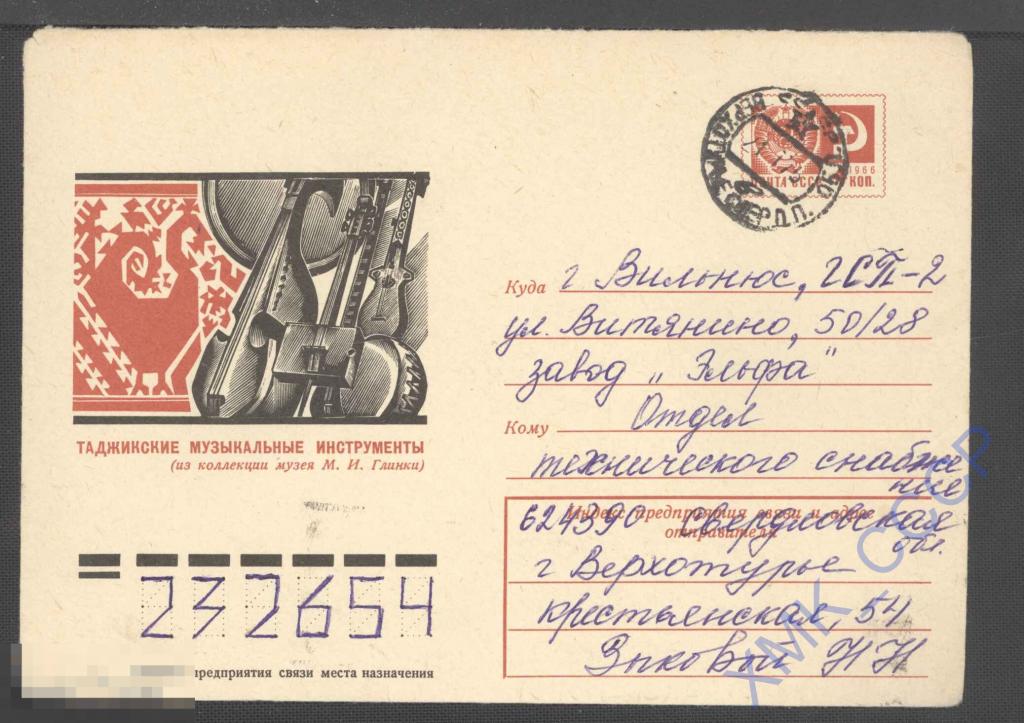 ПОЧТА СССР КОП.
1966
ТАДЖИКСКИЕ МУЗЫКАЛЬНЫЕ ИНСТРУМЕНТЫ
(из коллекции музея М. И. Глинки)
Куда г Вильнюс, ГСП-2
ул. Витянино, 50/28
завод „Эльфа"
Кому Отдел
технического снабже
ние
Индекс предприятия связи и адрес
отправителя
624390 Свердловская
обл.
г Верхотурье
крестьянская, 54
Зыковой Н Н
232654
предприятия связи места назначения
ХМК СССР